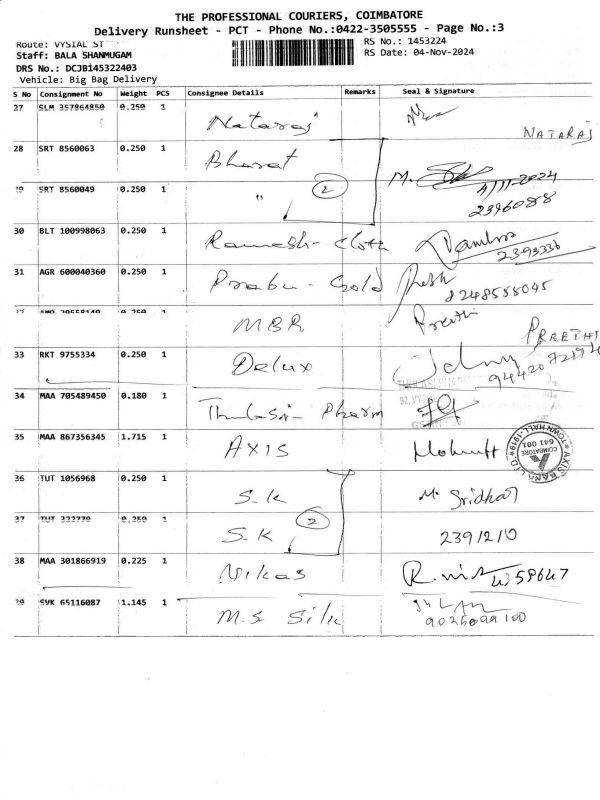 THE PROFESSIONAL COURIERS, COIMBATORE
Delivery Runsheet - PCT - Phone No.:0422-3505555 - Page No.:3
Route: VYSIAL ST
RS No.: 1453224
Staff: BALA SHANMUGAM
RS Date: 04-Nov-2024
DRS No.: DCJB145322403
Vehicle: Big Bag Delivery
S No Consignment No Weight PCS Consignee Details Remarks Seal & Signature
27 SLM 357864850 0.250 1 Nataraj NATARAJ
28 SRT 8560063 0.250 1 Bharat M.
4/11-2024
29 SRT 8560049 0.250 1 " 2 2396088
30 BLT 100998063 0.250 1 Ramesh-Cloth
2393336
31 AGR 600040360 0.250 1 Prabu-Gold
8248558045
MBR Preethi PREETHI
33 RKT 9755334 0.250 1 Delux
34 MAA 705489450 0.180 1 Thulasi-Pharm
35 MAA 867356345 1.715 1 AXIS
AXIS BANK LTD TOWN HALL-1919 COIMBATORE 641 001
36 TUT 1056968 0.250 1 S.K M. Sridhar
37 TUT 322770 0.250 1 S.K 2 2391210
38 MAA 301866919 0.225 1 Vikas
39 SVK 65116087 1.145 1 M.S Silk